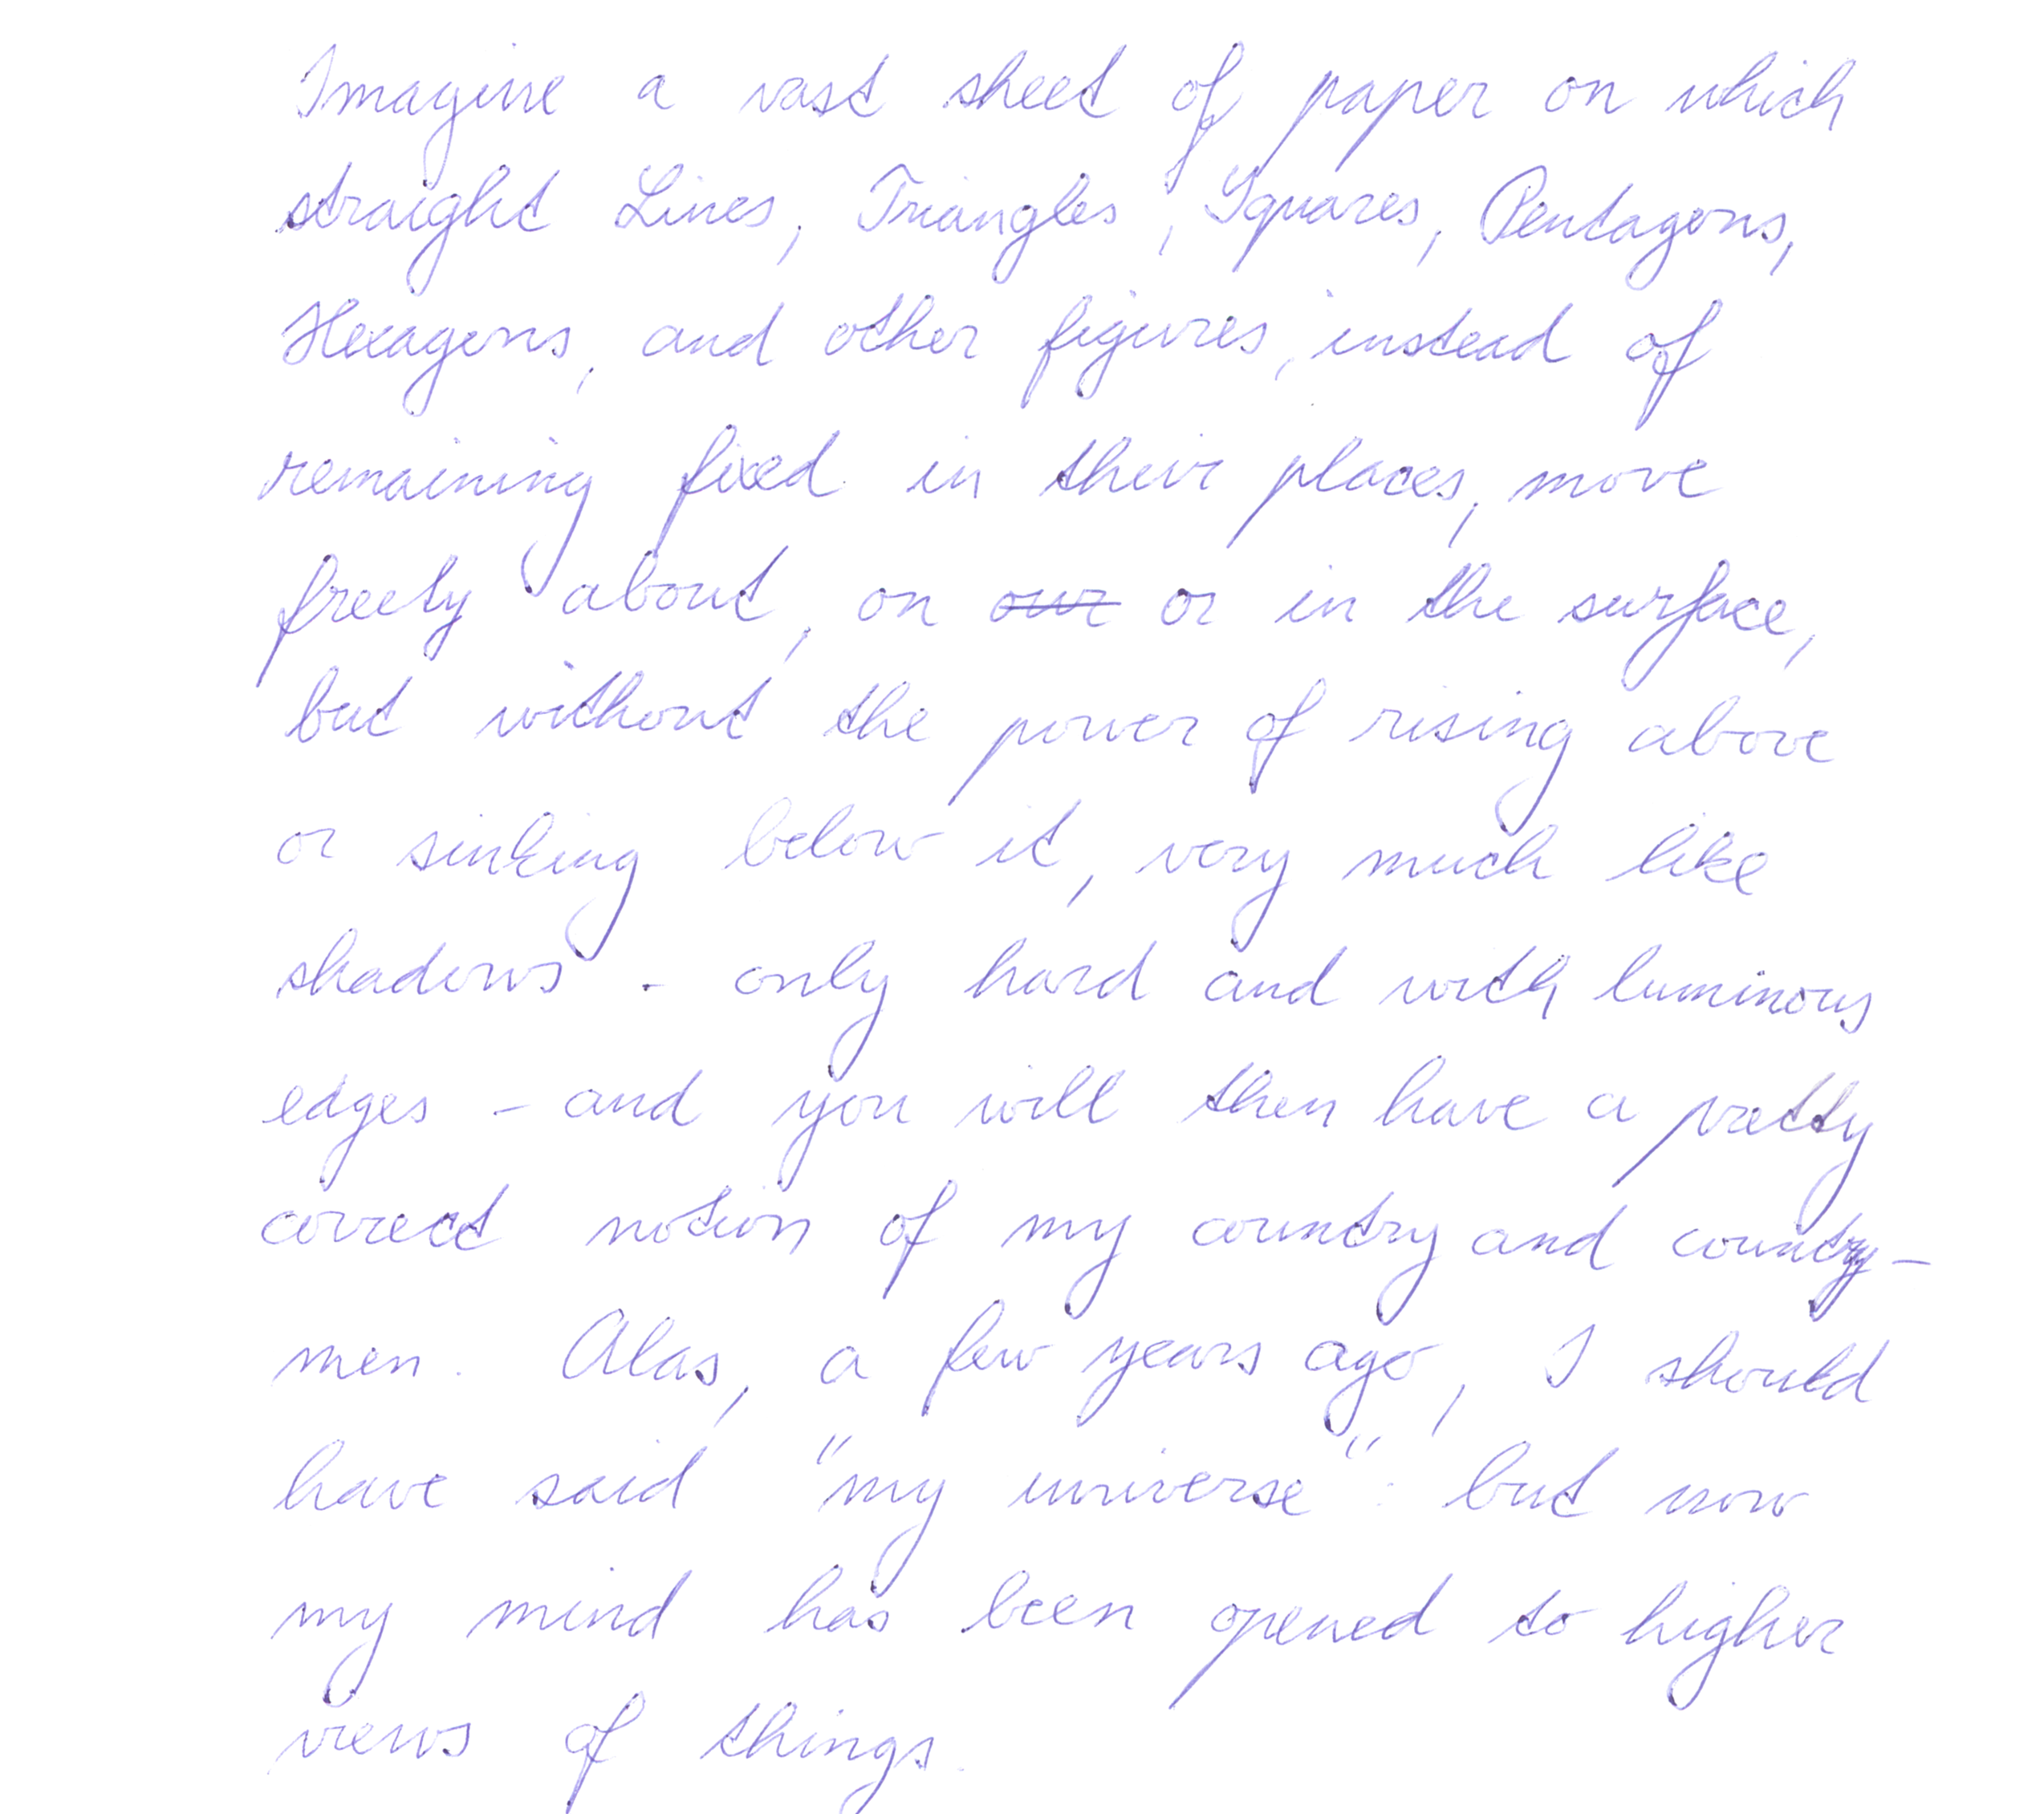 Imagine a vast sheet of paper on which
straight Lines, Triangles, Squares, Pentagons,
Hexagons, and other figures, instead of
remaining fixed in their places, move
freely about, on our or in the surface,
but without the power of rising above
or sinking below it, very much like
shadows - only hard and with luminous
edges - and you will then have a pretty
correct notion of my country and country-
men. Alas, a few years ago, I should
have said "my universe": but now
my mind has been opened to higher
views of things.